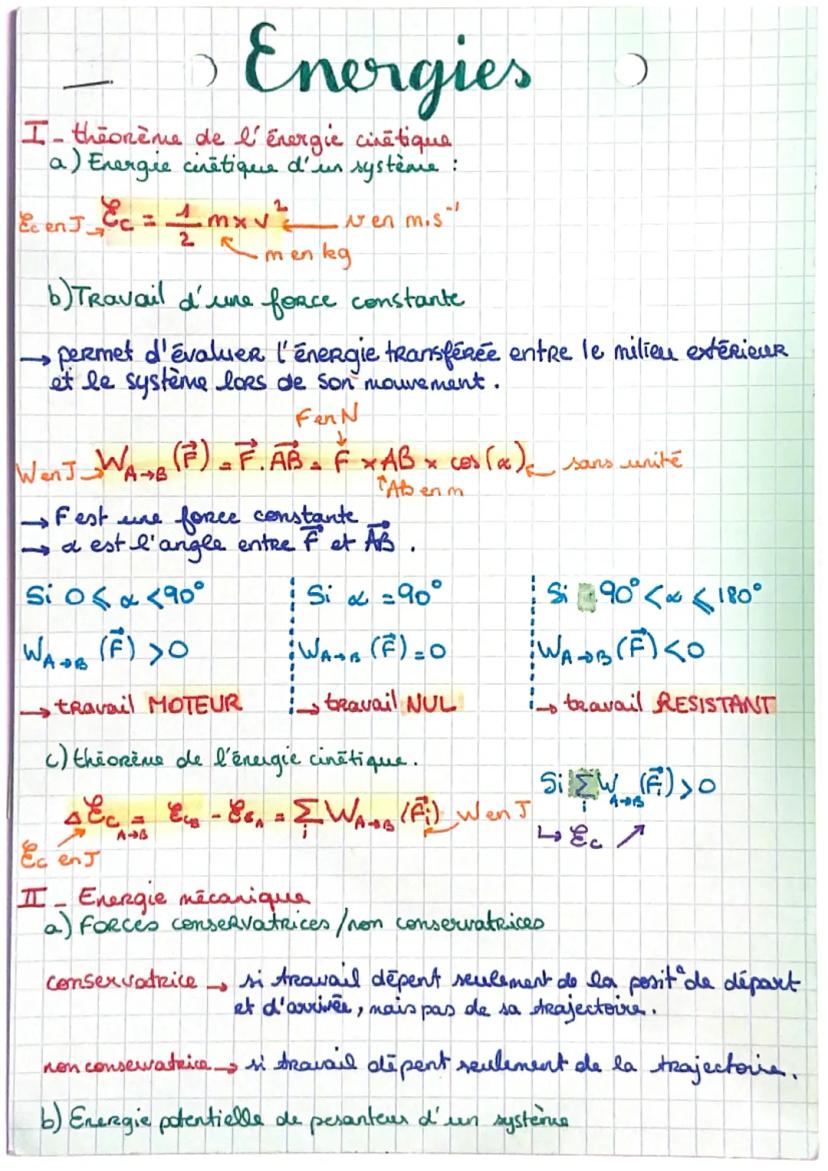 Energies
I - théorème de l'énergie cinétique
a) Energie cinétique d'un système :
Ec en J → Ec = 1/2 m x v² ← v en m.s⁻¹
m en kg
b) Travail d'une force constante
→ permet d'évaluer l'énergie transférée entre le milieu extérieur
et le système lors de son mouvement.
F en N
W en J → W A→B (F⃗) = F⃗ . AB⃗ = F x AB x cos(α) ← sans unité
↑ Ab en m
→ F est une force constante
→ α est l'angle entre F⃗ et AB⃗ .
Si 0 ⩽ α < 90°
W A→B (F⃗) > 0
→ travail MOTEUR
Si α = 90°
W A→B (F⃗) = 0
→ travail NUL
Si 90° < α ⩽ 180°
W A→B (F⃗) < 0
→ travail RESISTANT
c) théorème de l'énergie cinétique.
Δ Ec A→B = Ec B - Ec A = Σi W A→B (F⃗i) ← W en J
Ec en J
Si Σi W A→B (F⃗i) > 0
↳ Ec ↗
II - Energie mécanique
a) Forces conservatrices / non conservatrices
conservatrice → si travail dépent seulement de la posit° de départ
et d'arrivée, mais pas de sa trajectoire.
non conservatrice → si travail dépent seulement de la trajectoire.
b) Energie potentielle de pesanteur d'un système